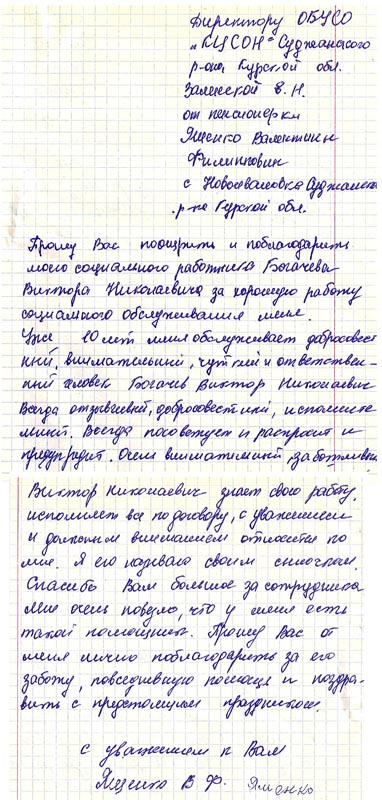 Директору ОБУСО
„КЦСОН" Суджанского
р-она Курской обл.
Заленской В. Н.
от пенсионерки
Ященко Валентины
Филипповны
с Новоивановка Суджанск
р-на Курской обл.
Прошу Вас поощрить и поблагодарить
моего социального работника Богачева
Виктора Николаевича за хорошую работу
социального обслуживания меня.
Уже 10 лет меня обслуживает добросовест
ный, внимательный, чуткий и ответствен-
ный человек Богачев Виктор Николаевич
Всегда отзывчивый, добросовестный, исполните
льный. Всегда посоветует и распросит и
предупредит. Очень внимательный заботливы
Виктор Николаевич знает свою работу,
исполняет все по договору, с уважением
и должным вниманием относится ко
мне. Я его называю своим сыночком.
Спасибо Вам большое за сотрудника
Мне очень повезло, что у меня есть
такой помощник. Прошу Вас от
меня лично поблагодарить за его
заботу, повседневную помощь и поздра-
вить с предстоящим праздником.
с уважением к Вам
Ященко В. Ф. Ященко